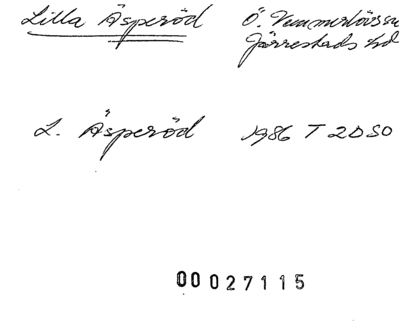 Lilla Äsperöd Ö. Vemmerlövs sn
Järrestads hd
L. Äsperöd 1986 T 2D SO
00 027115